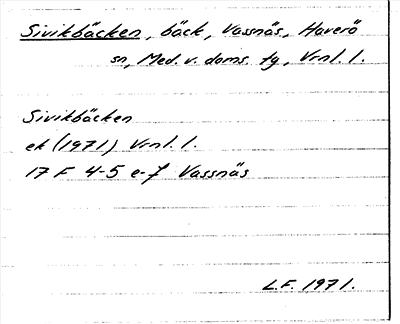 Sivikbäcken, bäck, Vassnäs, Haverö
sn, Med. v. doms. tg, Vrnl. l.
Sivikbäcken
ek (1971) Vrnl. l.
17 F 4-5 e-f Vassnäs
L.F. 1971.